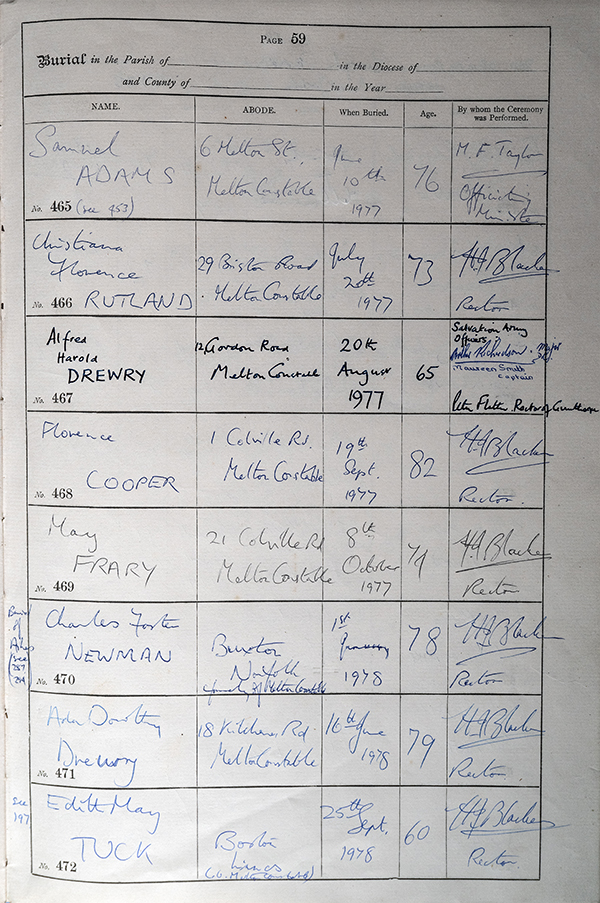 PAGE 59
Burial in the Parish of in the Diocese of
and County of in the Year
NAME. ABODE. When Buried. Age. By whom the Ceremony was Performed.
Samuel
ADAMS
No. 465 (see 453)
6 Melton St.
Melton Constable
June
10th
1977
76
M. F. Taylor
Officiating
Minister
Christiana
Florence
No. 466 RUTLAND
29 Briston Road
Melton Constable
July
20th
1977
73
H F Blacker
Rector
Alfred
Harold
DREWRY
No. 467
12, Gordon Road
Melton Constable
20th
August
1977
65
Salvation Army
Officers
Richardson. Major
Maureen Smith
Captain
Rector of Gunthorpe
Florence
COOPER
No. 468
1 Colville Rd.
Melton Constable
19th
Sept.
1977
82
H F Blacker
Rector.
May
FRARY
No. 469
21 Colville Rd
Melton Constable
8th
October
1977
H F Blacker
Rector
Burial
of
Ashes
(see
Charles Foster
NEWMAN
No. 470
Buxton
Norfolk
formerly of Melton Constable
1st
1978
78
H F Blacker
Rector.
Ada Dorothy
Drewry
No. 471
18 Kitchener Rd
Melton Constable
16th June
1978
79
H F Blacker
Rector.
see
197
Edith May
TUCK
No. 472
Boston
Lincs
25th
Sept.
1978
60
H F Blacker
Rector.